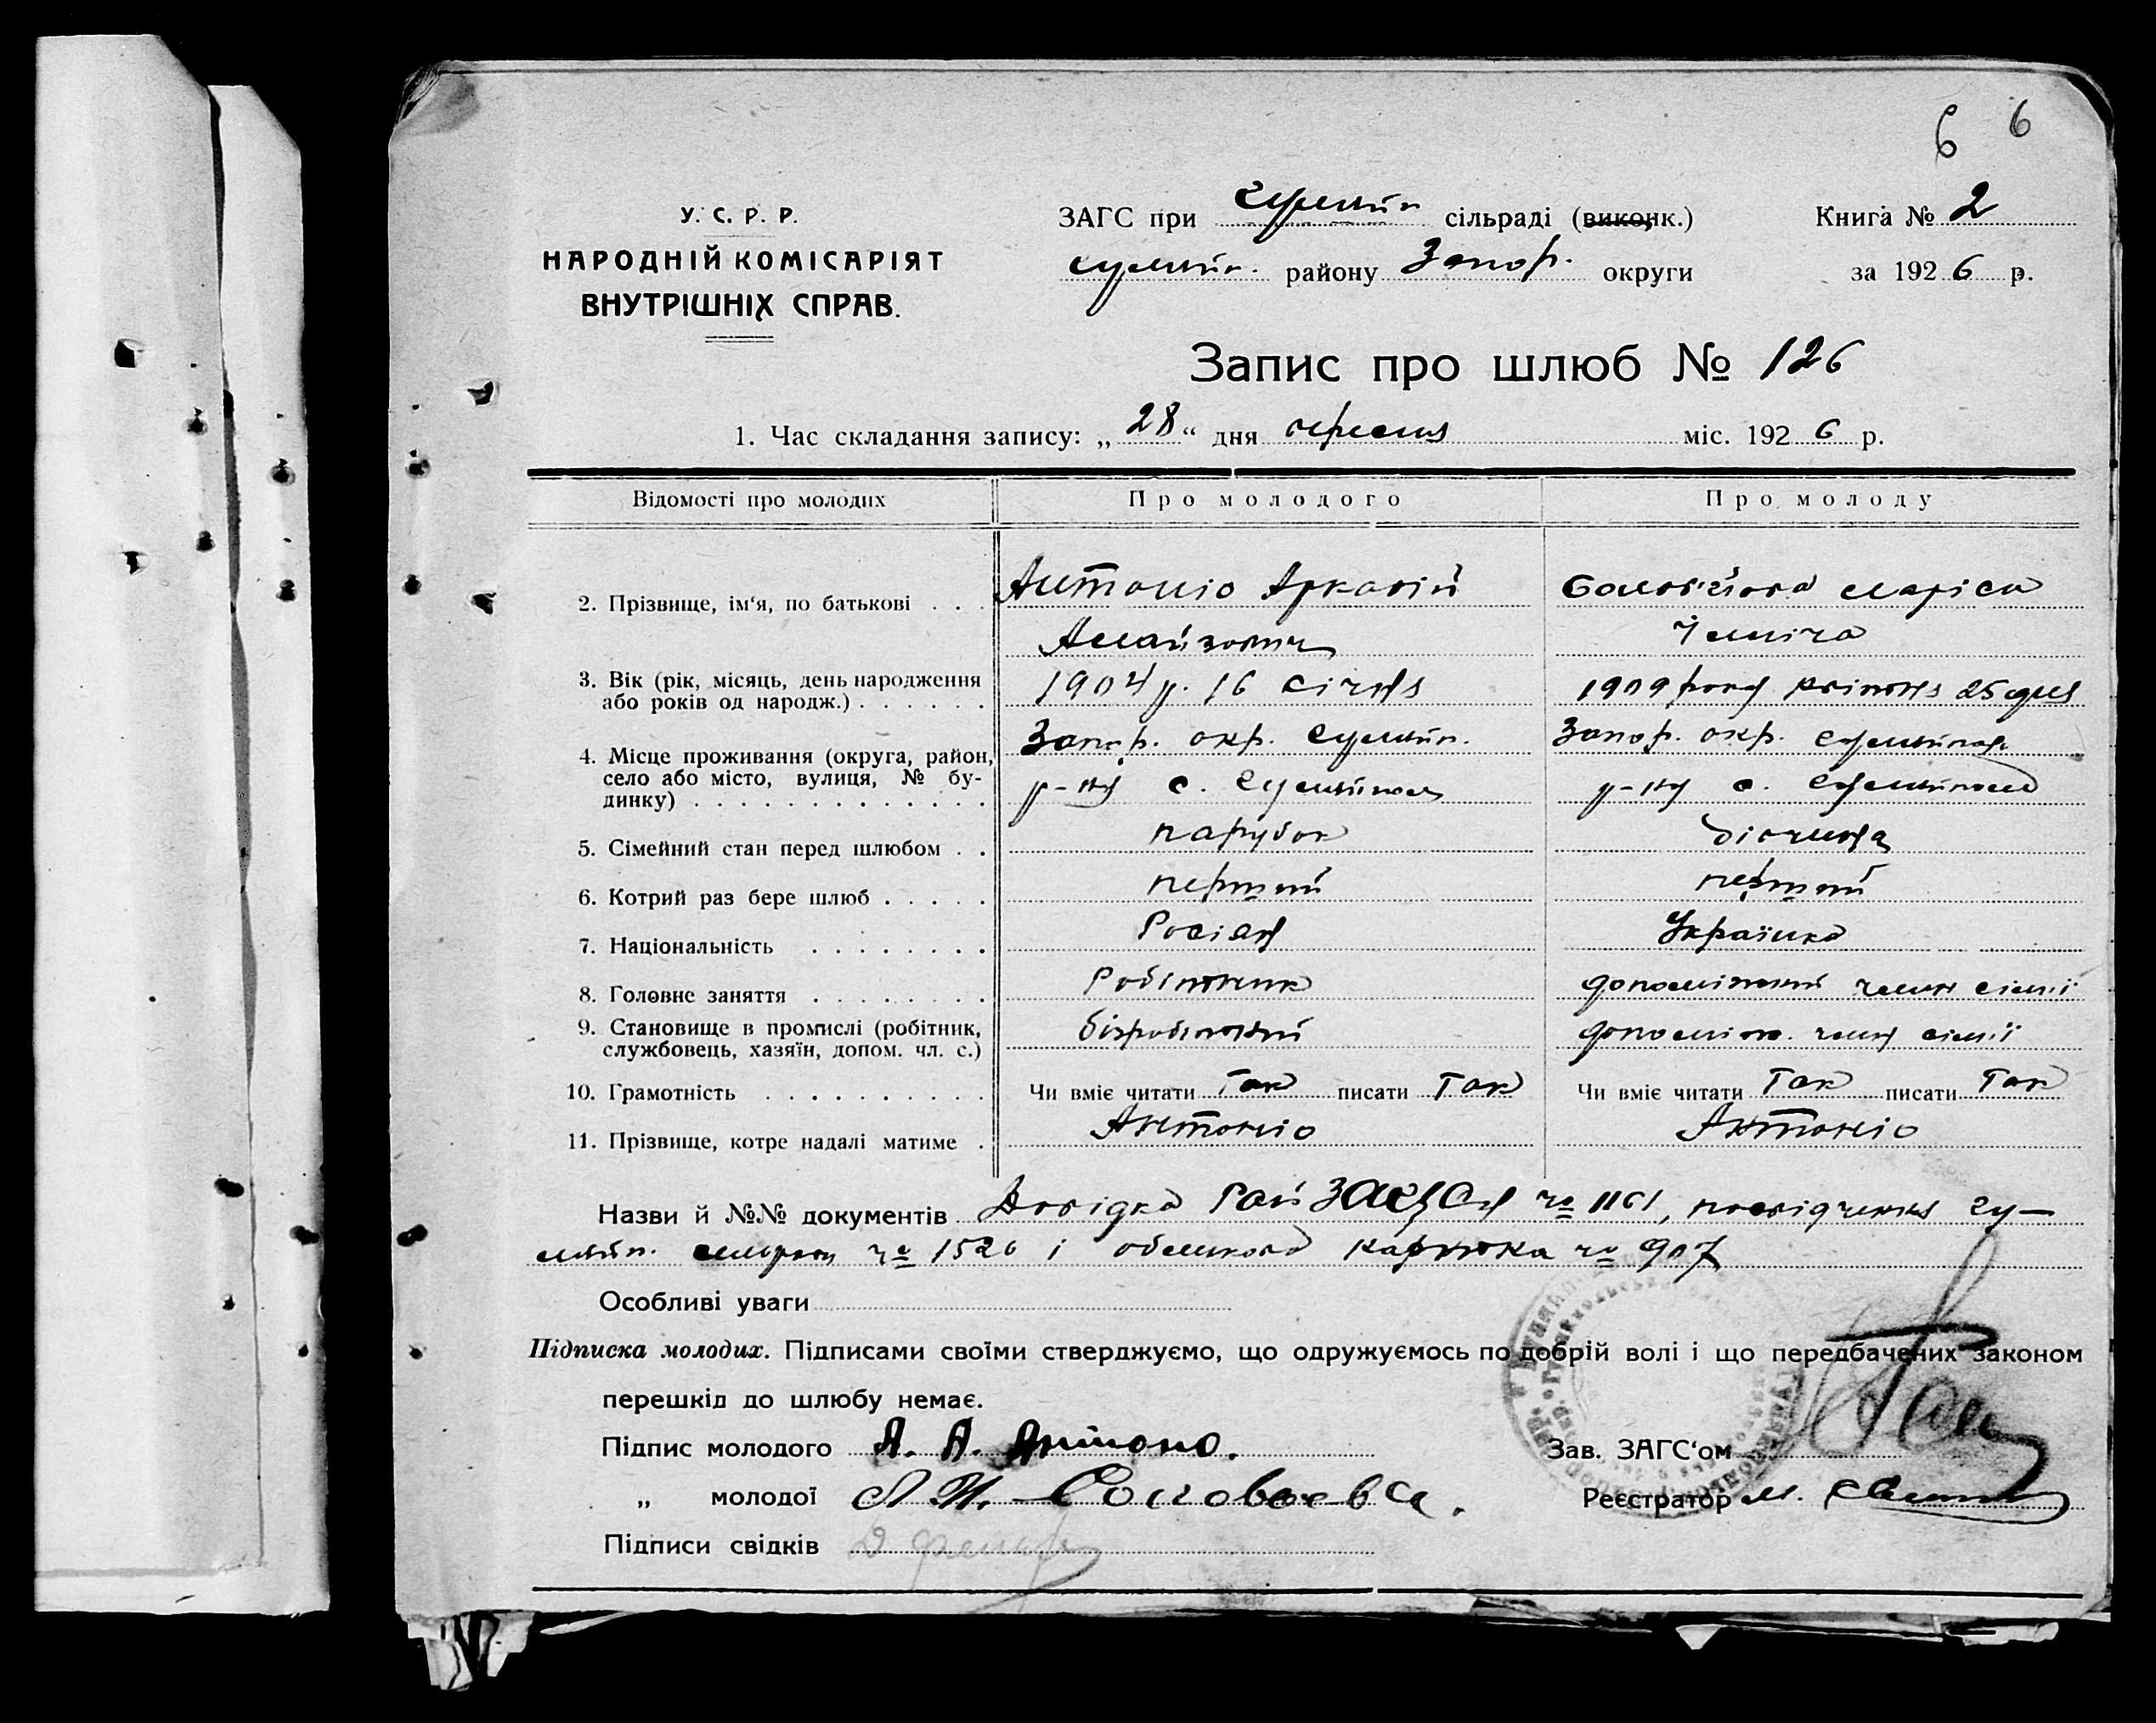 6 6
У. С. Р. Р.
НАРОДНІЙ КОМІСАРІЯТ
ВНУТРІШНІХ СПРАВ.
ЗАГС при Гуляйп сільраді (виконк.)
Гуляйп. району Запор. округи
Книга № 2
за 1926 р.
Запис про шлюб № 126
1. Час складання запису: „28“ дня вересня міс. 1926 р.
Відомості про молодих Про молодого Про молоду
2. Прізвище, ім‘я, по батькові . . . Антоніо Аркадій
3. Вік (рік, місяць, день народження
або років од народж.) . . . . . . 1904 р. 16 січня 1909 року квітня 25 дня
4. Місце проживання (округа, район, Запор. окр. Гуляйп. Запор. окр. Гуляйпол.
село або місто, вулиця, № бу- р-ну с. Гуляйполе р-ну с. Гуляйполе
динку) . . . . . . . . . . . . .
5. Сімейний стан перед шлюбом . . парубок дівчина
6. Котрий раз бере шлюб . . . . . перший перший
7. Національність . . . . . . . . Українка
8. Головне заняття . . . . . . . . Робітник допоміжний член сімї
9. Становище в промислі (робітник, безробітний допоміж. член сімії
службовець, хазяїн, допом. чл. с.)
10. Грамотність . . . . . . . . . . Чи вміє читати Так писати Так Чи вміє читати Так писати Так
11. Прізвище, котре надалі матиме . Антоніо Антоніо
Назви й №№ документів Довідка Рай ЗАГСА № 1161, посвідчення Гу-
ляйп. № 1526 і облікова картка № 907
Особливі уваги
Підписка молодих. Підписами своїми стверджуємо, що одружуємось по добрій волі і що передбачених законом
перешкід до шлюбу немає.
Підпис молодого А. А. Антоніо.
Зав. ЗАГС‘ом
„ молодої Соловьева.
Реєстратор М.
Підписи свідків